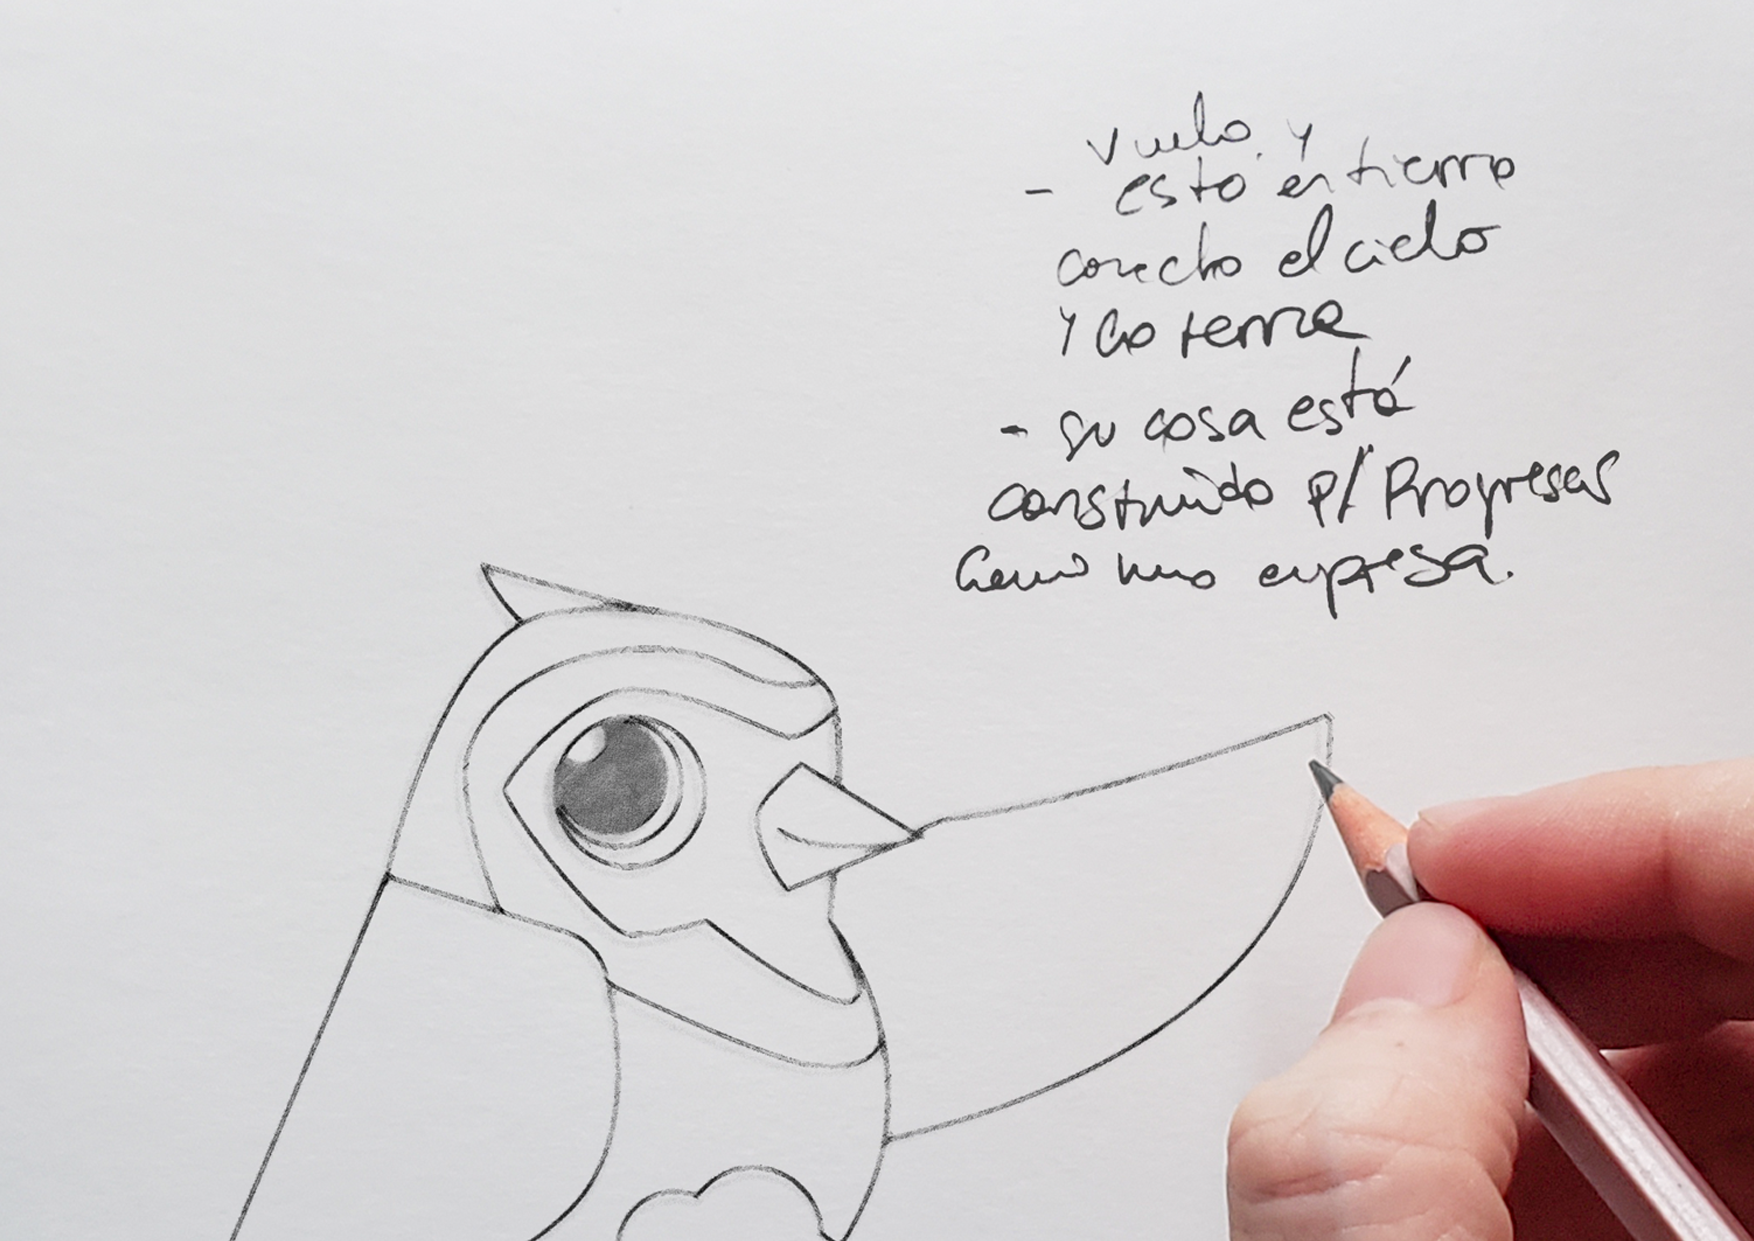 vuela y
- está en tierra
conecta el cielo
y la tierra
- su casa está
construida p/ Progresar
como una empresa.